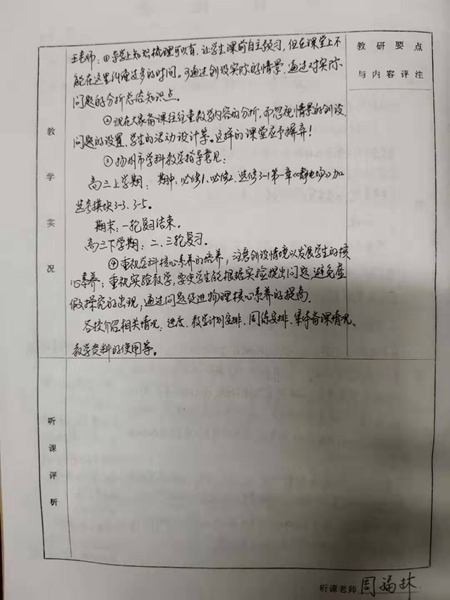 王老师：①导学上知识梳理可以有，让学生课前自主预习，但在课堂上不
能在这里纠缠过多的时间。可通过创设实际的情景，通过对实际
问题的分析总结知识点。
②现在大家备课往往重教学内容的分析，而忽视情景的创设
问题的设置、学生的活动设计等。这样的课堂应予摒弃！
③扬州市学科教学指导意见：
高三上学期：期中：必修1、必修2、选修3-1第一章《静电场》加
选考模块3-3、3-5。
期末：一轮复习结束。
高三下学期：二、三轮复习。
④重视学科核心素养的培养；注意创设情境以发展学生的核
心素养；重视实验教学，要使学生能根据实验提出问题，避免虚
假探究的出现，通过问题促进物理核心素养的提高。
各校介绍相关情况，进度、教学计划安排、周练安排、集体备课情况、
教学资料的使用等。
教研要点
与内容评注
教学实况
听课评析
听课老师 周福林